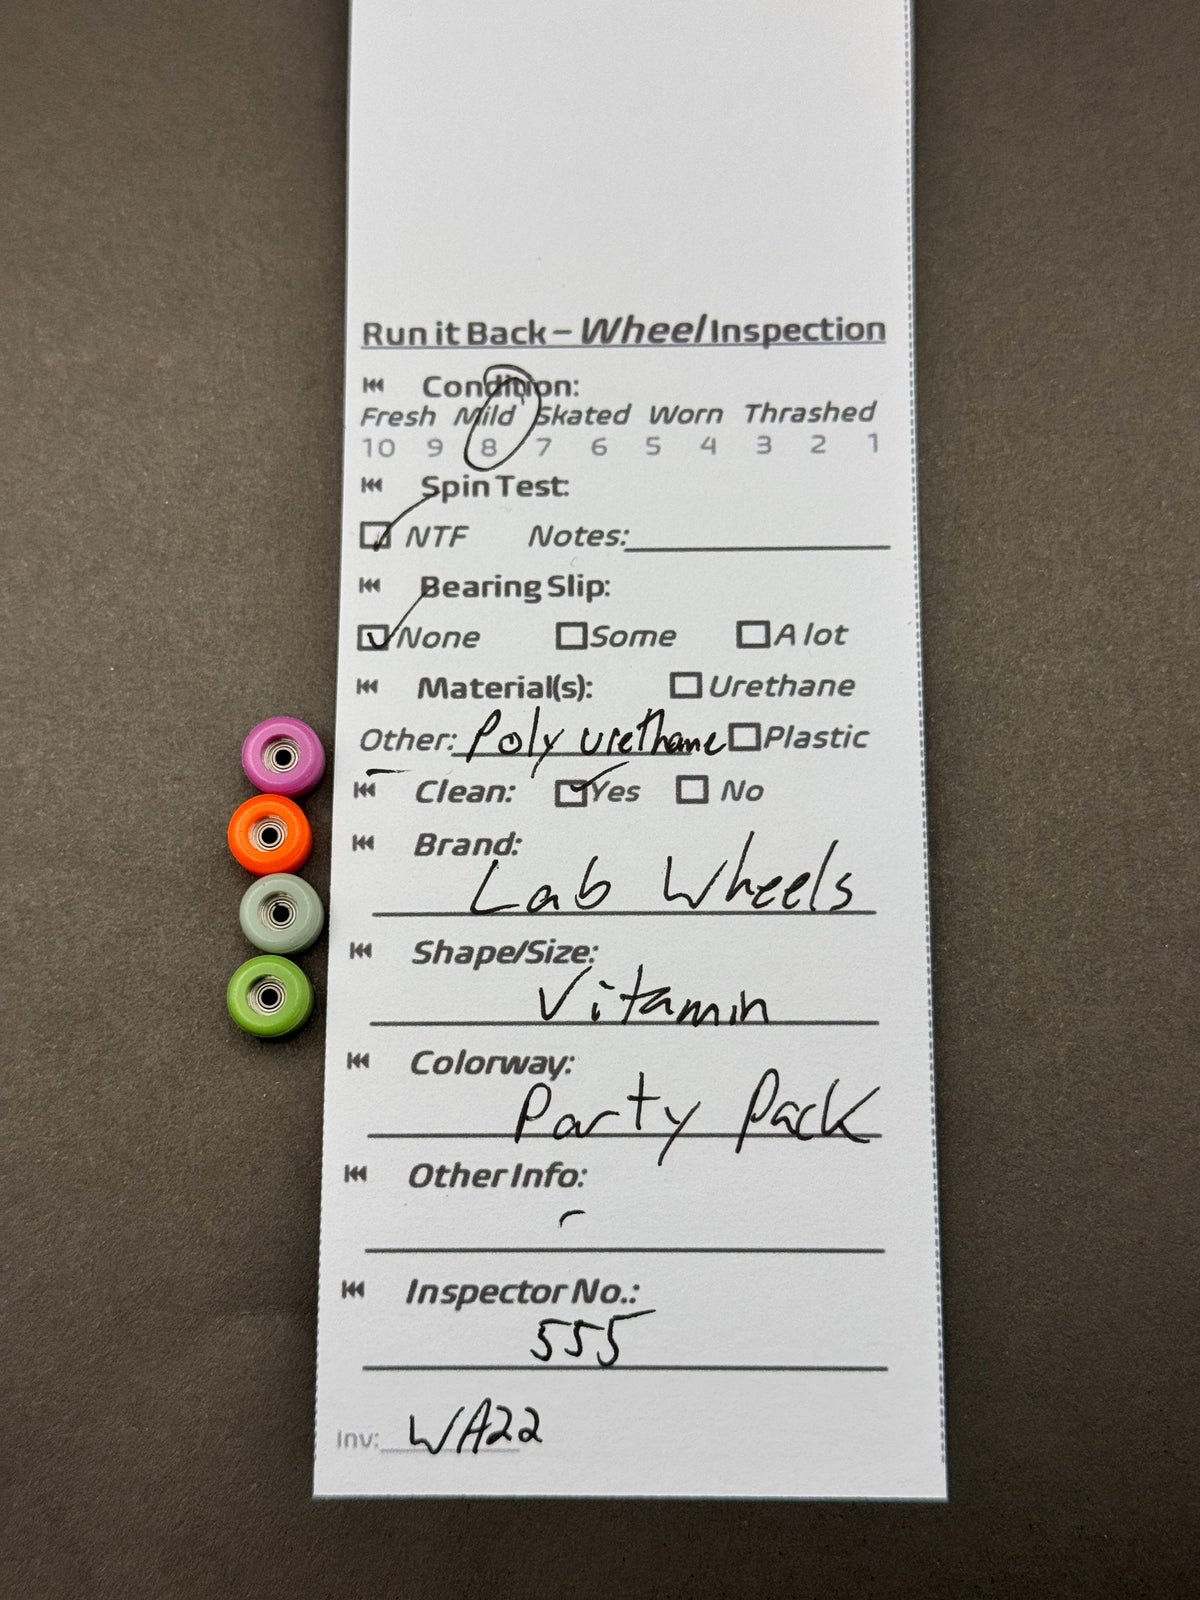 Run it Back – Wheel Inspection
Condition:
Fresh Mild Skated Worn Thrashed
10 9 8 7 6 5 4 3 2 1
Spin Test:
NTF Notes:
Bearing Slip:
None Some A lot
Material(s): Urethane
Other: Poly urethane Plastic
Clean: Yes No
Brand:
Lab Wheels
Shape/Size:
Vitamin
Colorway:
Party Pack
Other Info:
Inspector No.:
555
Inv: WA22